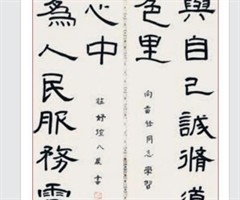 與自己誠脩道
色里
向雷鋒同志學習
心中
八歲書
為人民服務雷